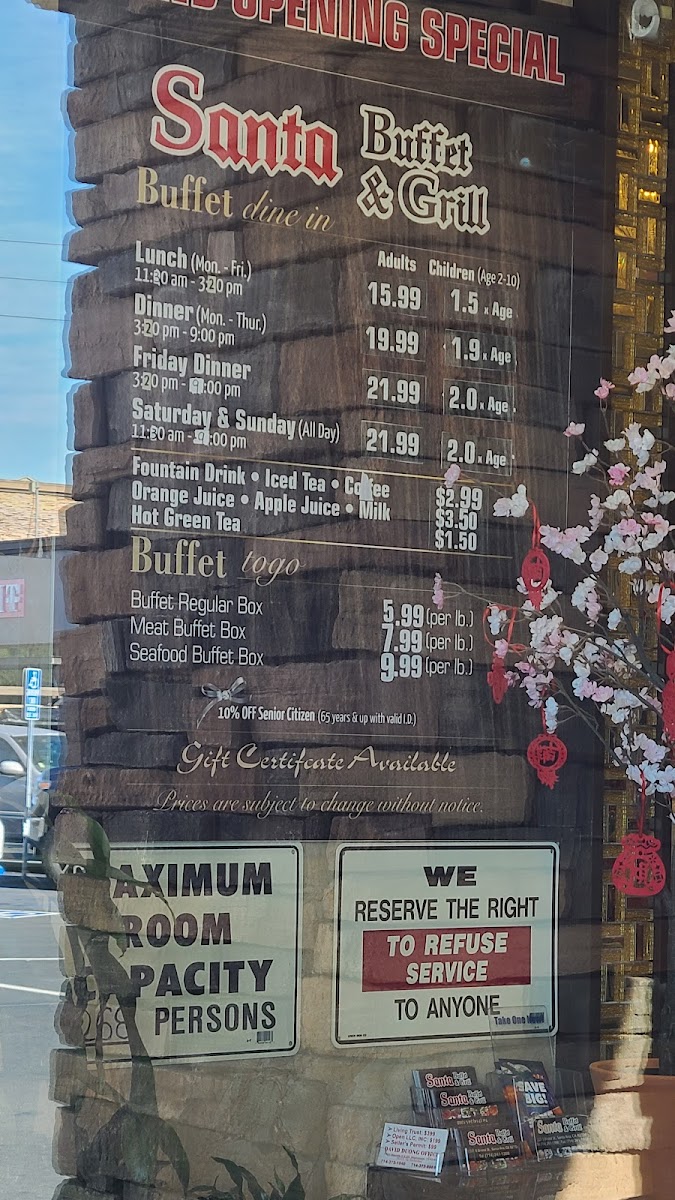 OPENING SPECIAL
Santa Buffet & Grill
Buffet dine in
Adults Children (Age 2-10)
Lunch (Mon. - Fri.)
11:00 am - 3:20 pm 15.99 1.5 x Age
Dinner (Mon. - Thur.)
3:20 pm - 9:00 pm 19.99 1.9 x Age
Friday Dinner
3:20 pm - :00 pm 21.99 2.0 x Age
Saturday & Sunday (All Day)
11:00 am - :00 pm 21.99 2.0 x Age
Fountain Drink • Iced Tea • Coffee $2.99
Orange Juice • Apple Juice • Milk $3.50
Hot Green Tea $1.50
Buffet togo
Buffet Regular Box 5.99 (per lb.)
Meat Buffet Box 7.99 (per lb.)
Seafood Buffet Box 9.99 (per lb.)
10% OFF Senior Citizen (65 years & up with valid I.D.)
Gift Certifcate Available
Prices are subject to change without notice.
MAXIMUM
ROOM
CAPACITY
268 PERSONS
WE
RESERVE THE RIGHT
TO REFUSE
SERVICE
TO ANYONE
Take One
Santa Buffet & Grill
Santa Buffet & Grill
SAVE
BIG!
Santa Buffet & Grill
Santa Buffet & Grill
Living Trust, $399
Open LLC, INC, $100
Seller's Permit, $50
DAVID DUONG OFFICE